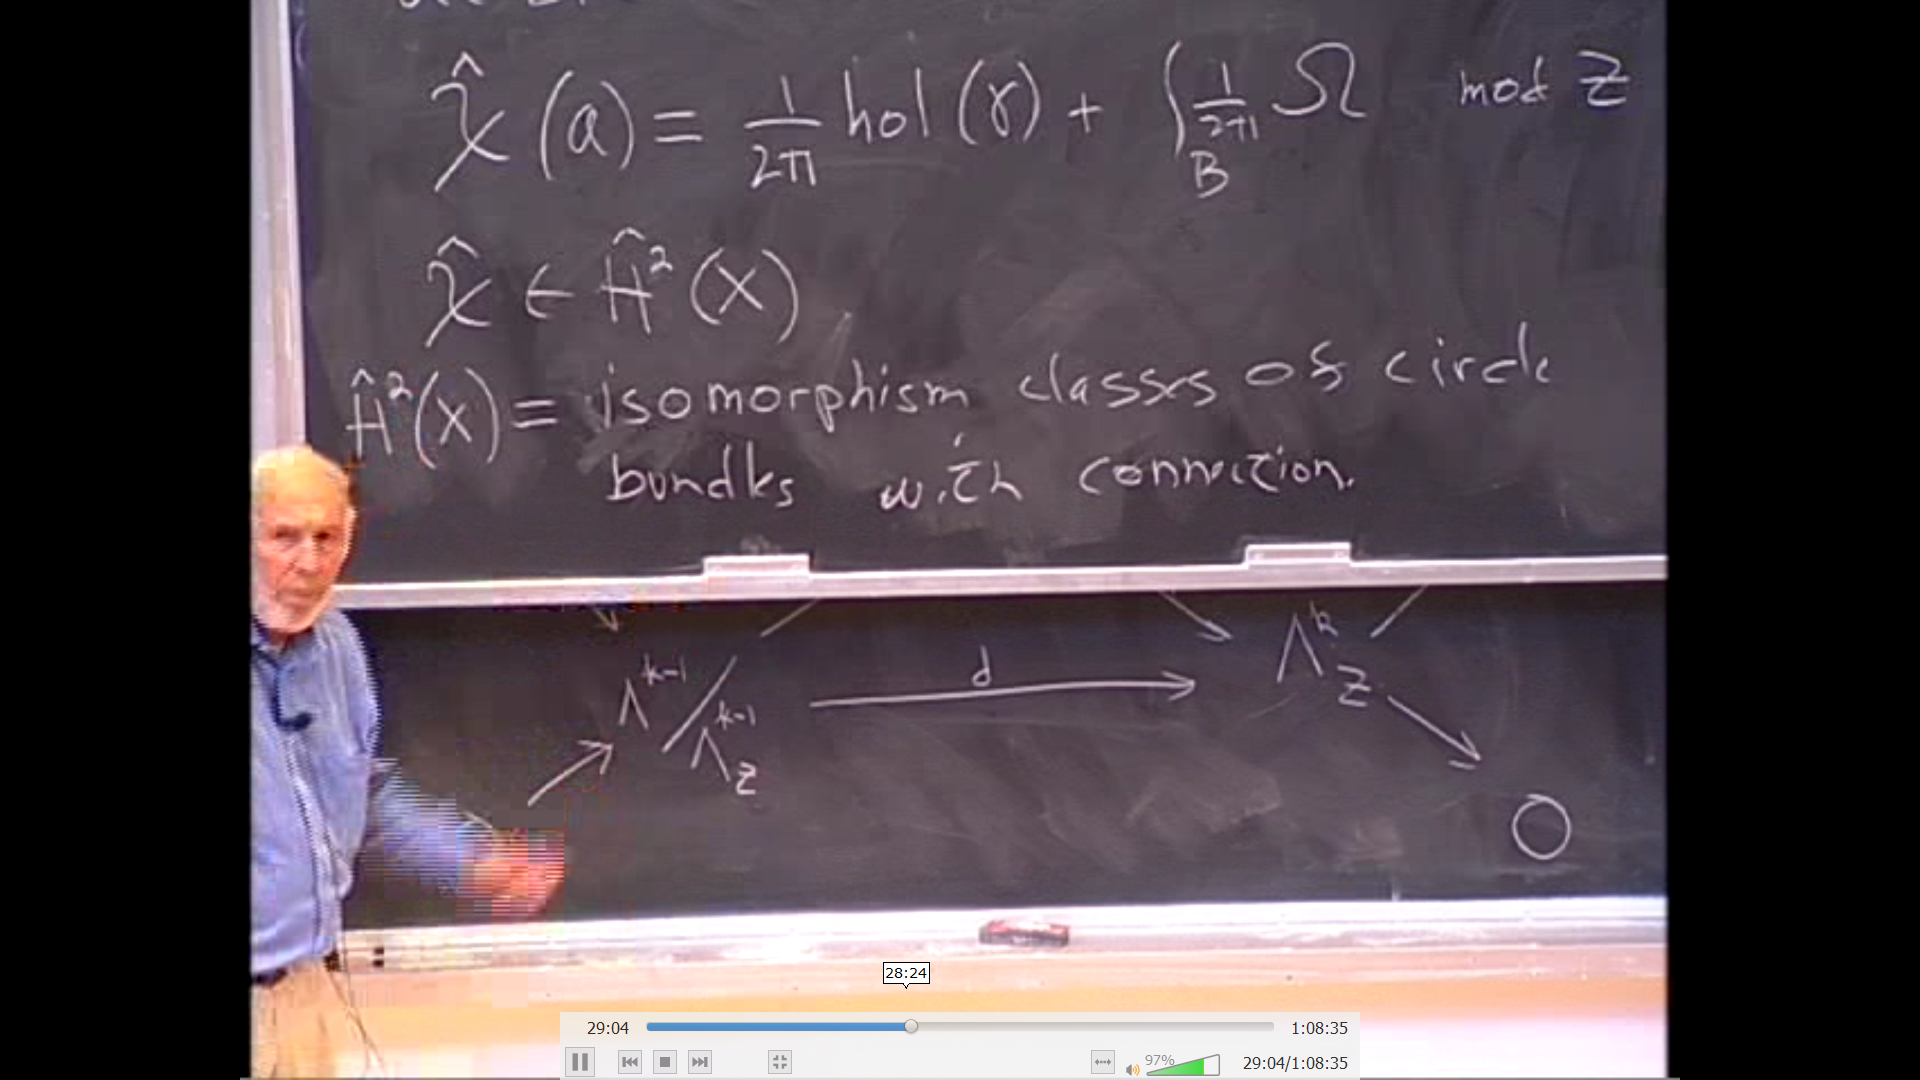 χ̂(a) = 1/2π hol(γ) + ∫_B 1/2π Ω mod Z
χ̂ ∈ Ĥ²(X)
Ĥ²(X) = isomorphism classes of circle
bundles with connection.
Λ^k-1 / Λ^k-1_Z
d
Λ^k_Z
0
28:24
29:04
1:08:35
97%
29:04/1:08:35